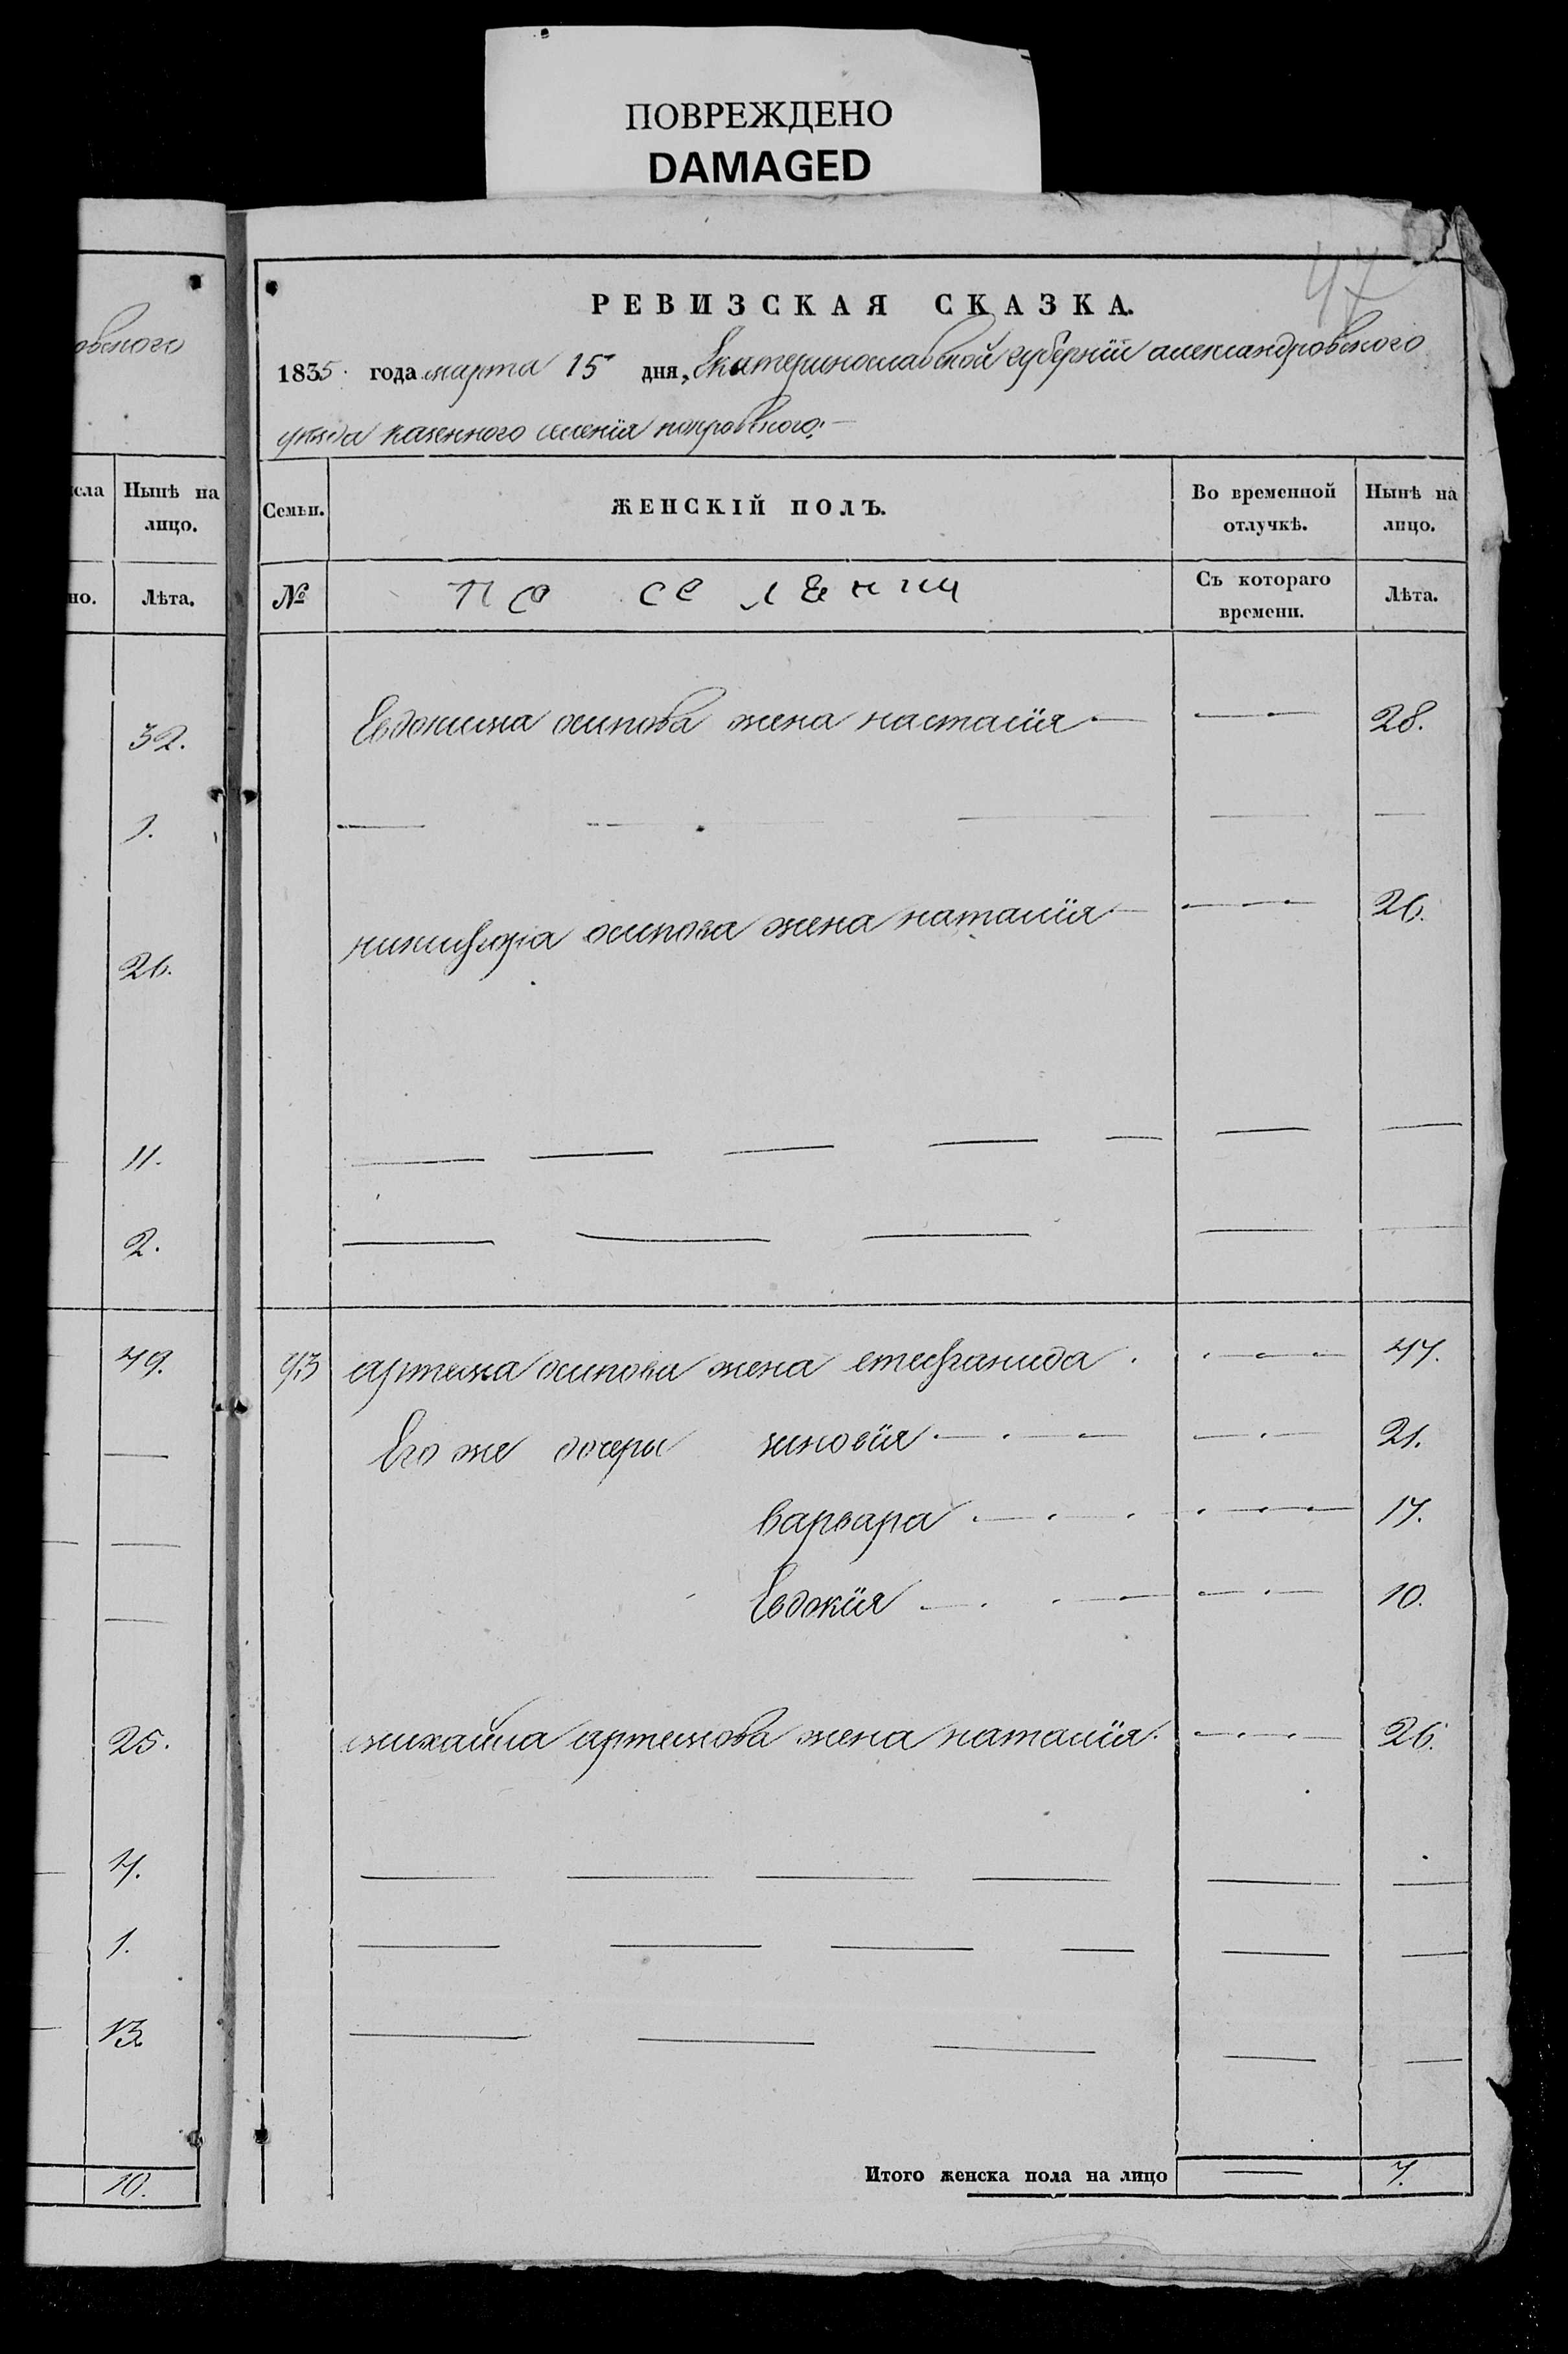 ПОВРЕЖДЕНО
DAMAGED
47
овского
сла
Нынѣ на
лицо.
но.
Лѣта.
32.
1.
26.
11.
2.
49.
25.
4.
1.
13.
10.
РЕВИЗСКАЯ СКАЗКА.
1835 года марта 15 дня, Екатеринославской губерніи александровского
уѣзда казенного селенія покровского.
Семьи.
ЖЕНСКІЙ ПОЛЪ.
Во временной
отлучкѣ.
Нынѣ на
лицо.
№
Съ котораго
времени.
Лѣта.
Евдокима осипова жена настасія 28.
никифора осипова жена наталія 26.
93 артема осипова жена стефанида 47.
Его же дочери зиновія 21.
варвара 17.
Евдокія 10.
михайла артемова жена наталія 26.
Итого женска пола на лицо 7.